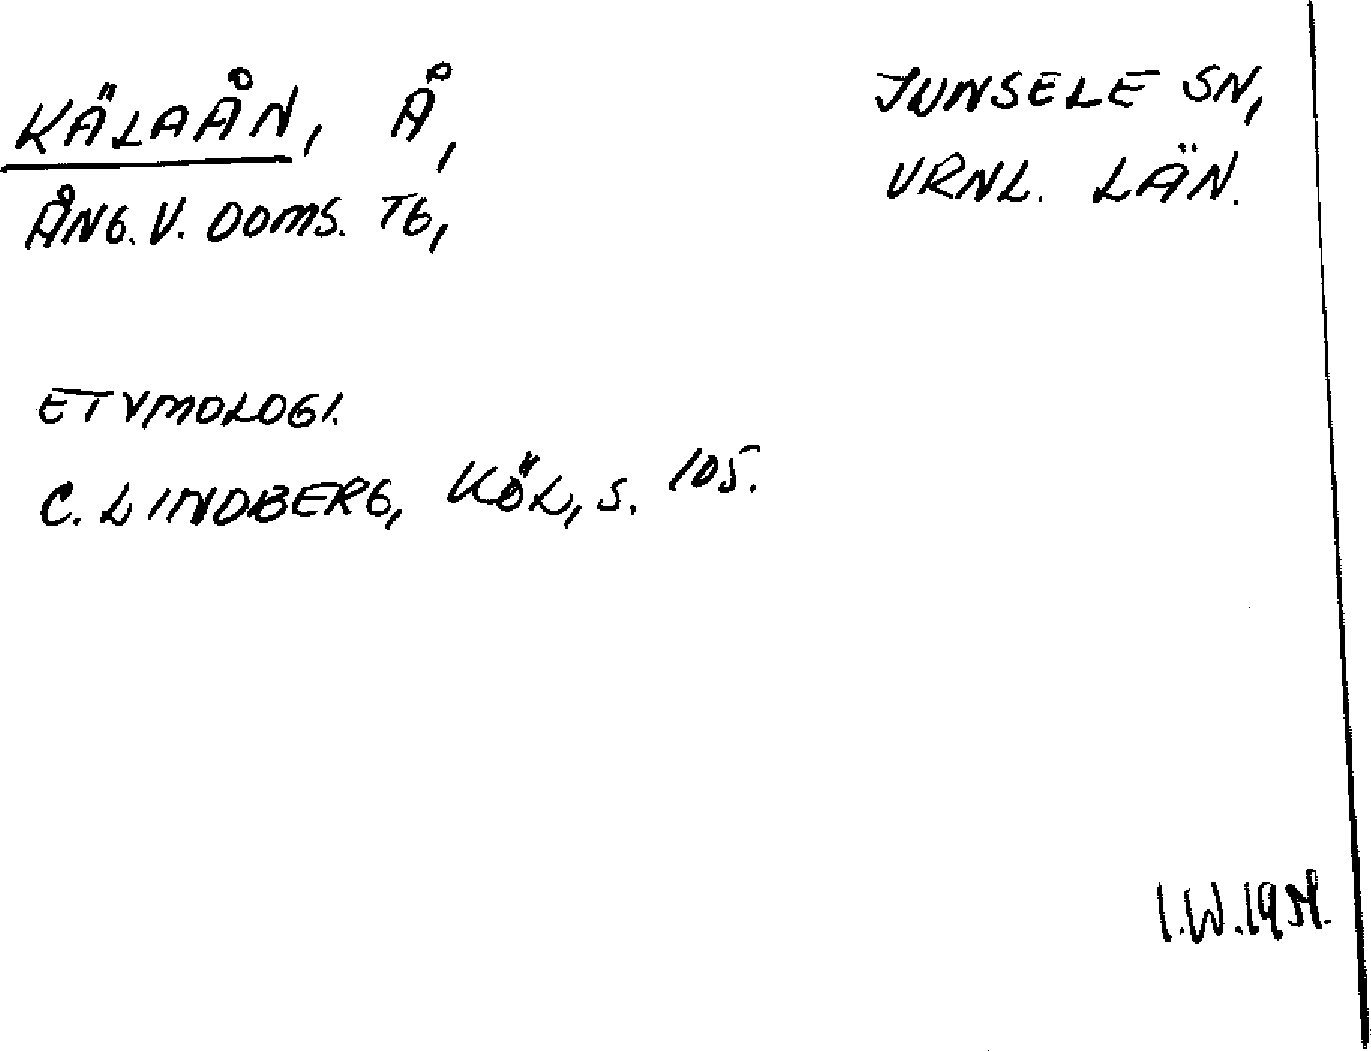 KÄLAÅN, Å,
JUNSELE SN,
ÅNG. V. DOMS. TG,
VRNL. LÄN.
ETYMOLOGI.
C. LINDBERG, KÖL, S. 105.
I.W.